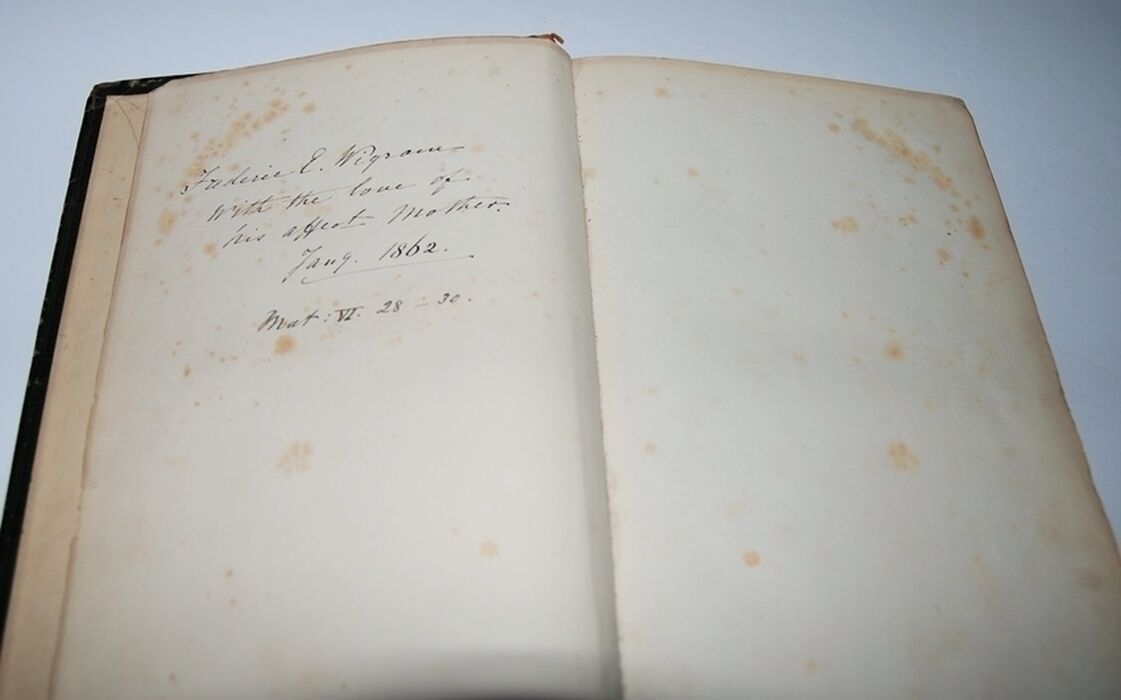 Frederic E. Wigram
With the love of
his affect Mother.
Jany. 1862.
Mat: VI. 28 - 30.